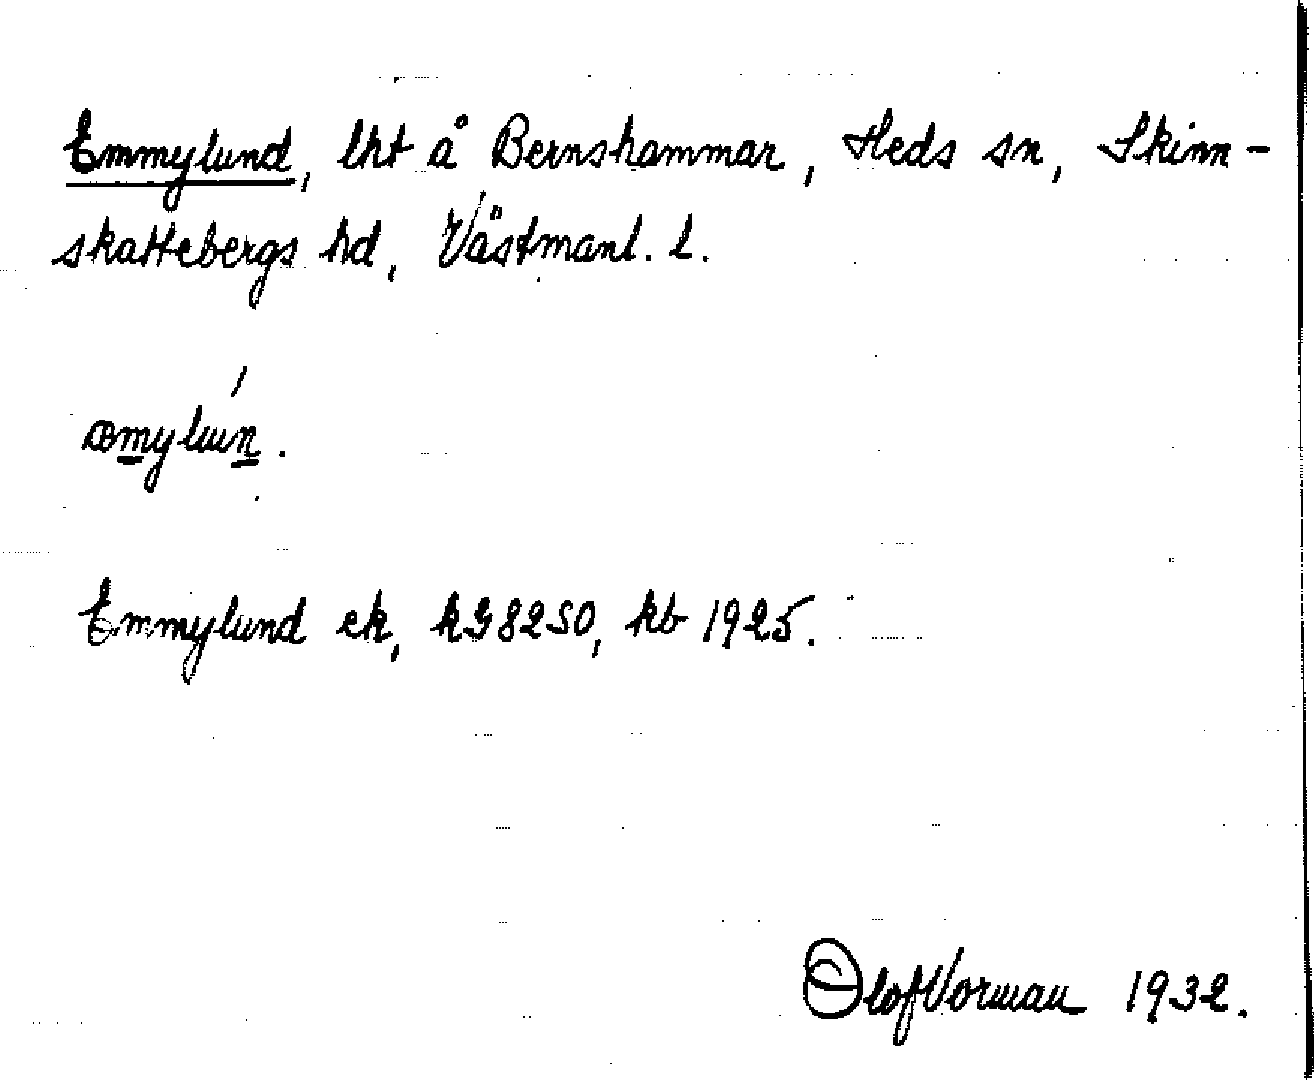 Emmylund, lht å Bernshammar, Heds sn, Skinn-
skattebergs hd, Västmanl. l.
æmylun.
Emmylund ek, kG8250, kb 1925.
Olof Vorman 1932.